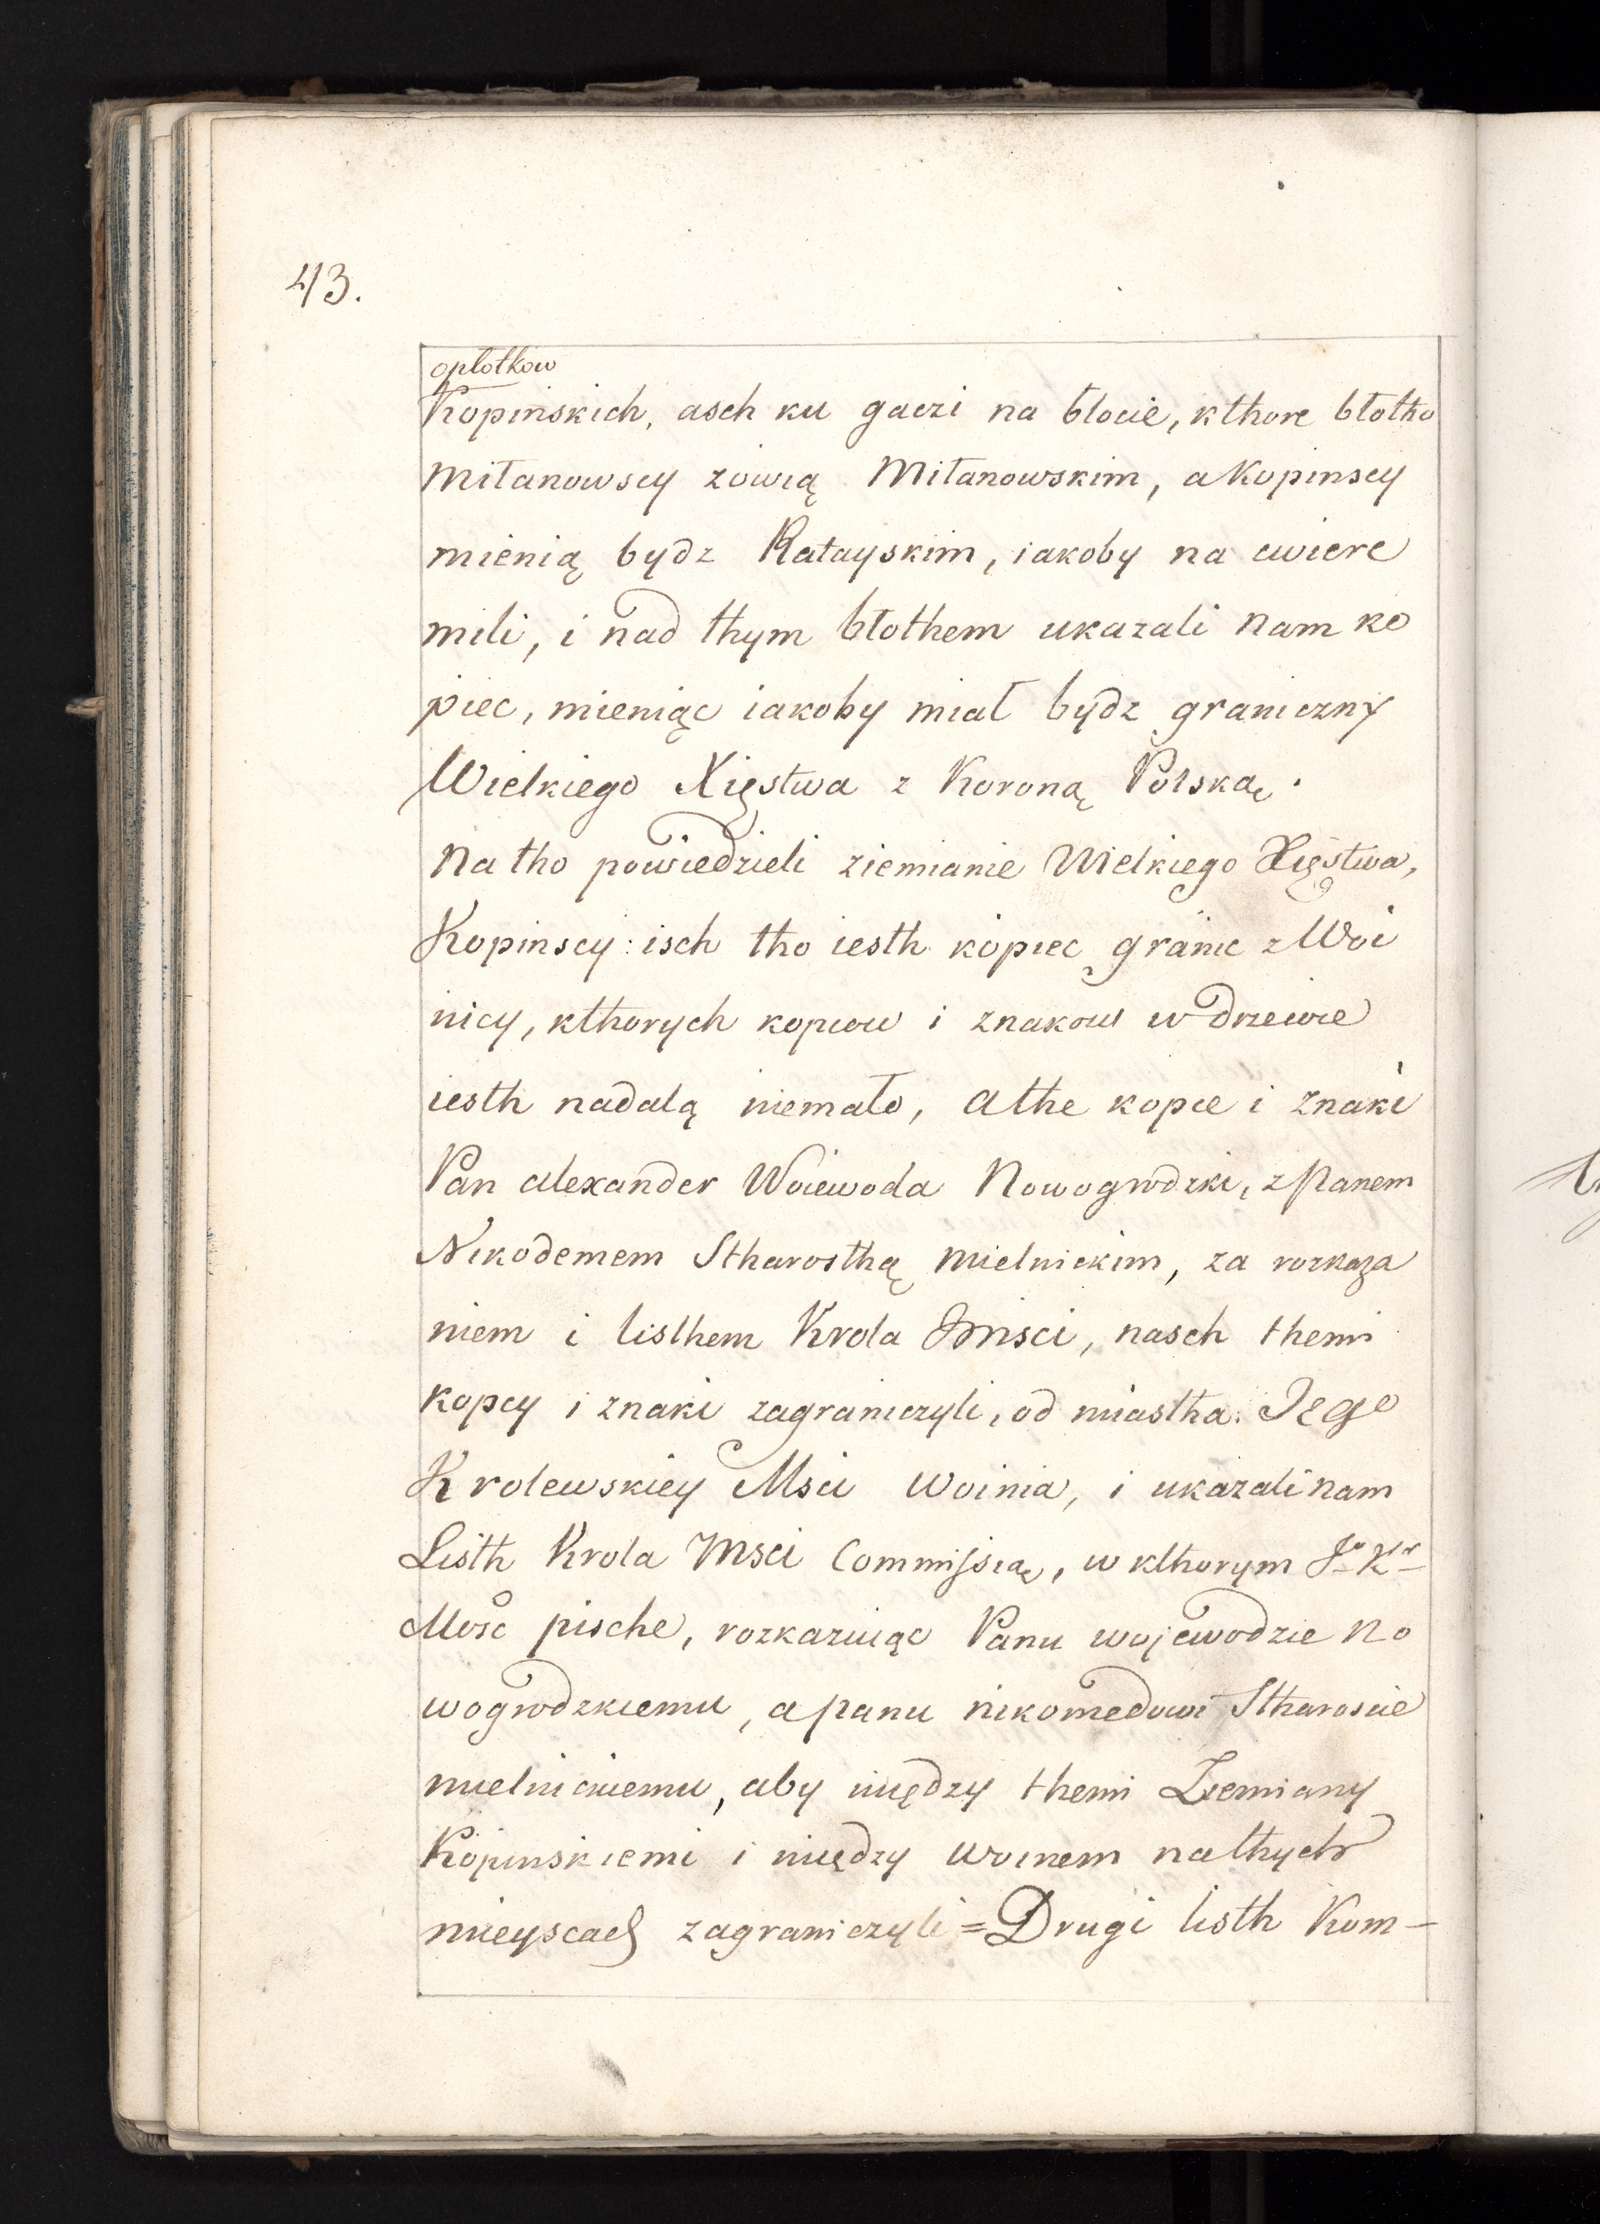 43.
opłotkow
Kopinskich, asch ku gaczi na błocie, kthore błotho
Miłanowscy zowią Miłanowskim, a Kopinscy
mienią bydz Ratayskim, iakoby na cwierc
mili, i nad thym błothem ukazali nam ko
piec, mieniąc iakoby miał bydz graniczny
Wielkiego Xięstwa z Koroną Polską.
Na tho powiedzieli ziemianie Wielkiego Xięstwa,
Kopinscy: isch tho iesth kopiec granic z Woi
nicy, kthorych kopcow i znakow w drzewie
iesth nadalą niemało, a the kopce i znaki
Pan alexander Woiewoda Nowogrodzki, z Panem
Nikodemem Stharosthą Mielnickim, za rozkaza
niem i listhem Krola Jmsci, nasch themi
kopcy i znaki zagraniczyli, od miastha Jego
Krolewskiey Msci Woinia, i ukazali nam
Listh Krola Jmsci Commissią, w kthorym Jo Kr
Mość pische, rozkazuiąc Panu wojewodzie No
wogrodzkiemu, a panu nikomedowi Stharoscie
mielnickiemu, aby między themi Ziemiany
Kopinskiemi i między Woinem na thych
mieyscach zagraniczyli = Drugi listh Kom-